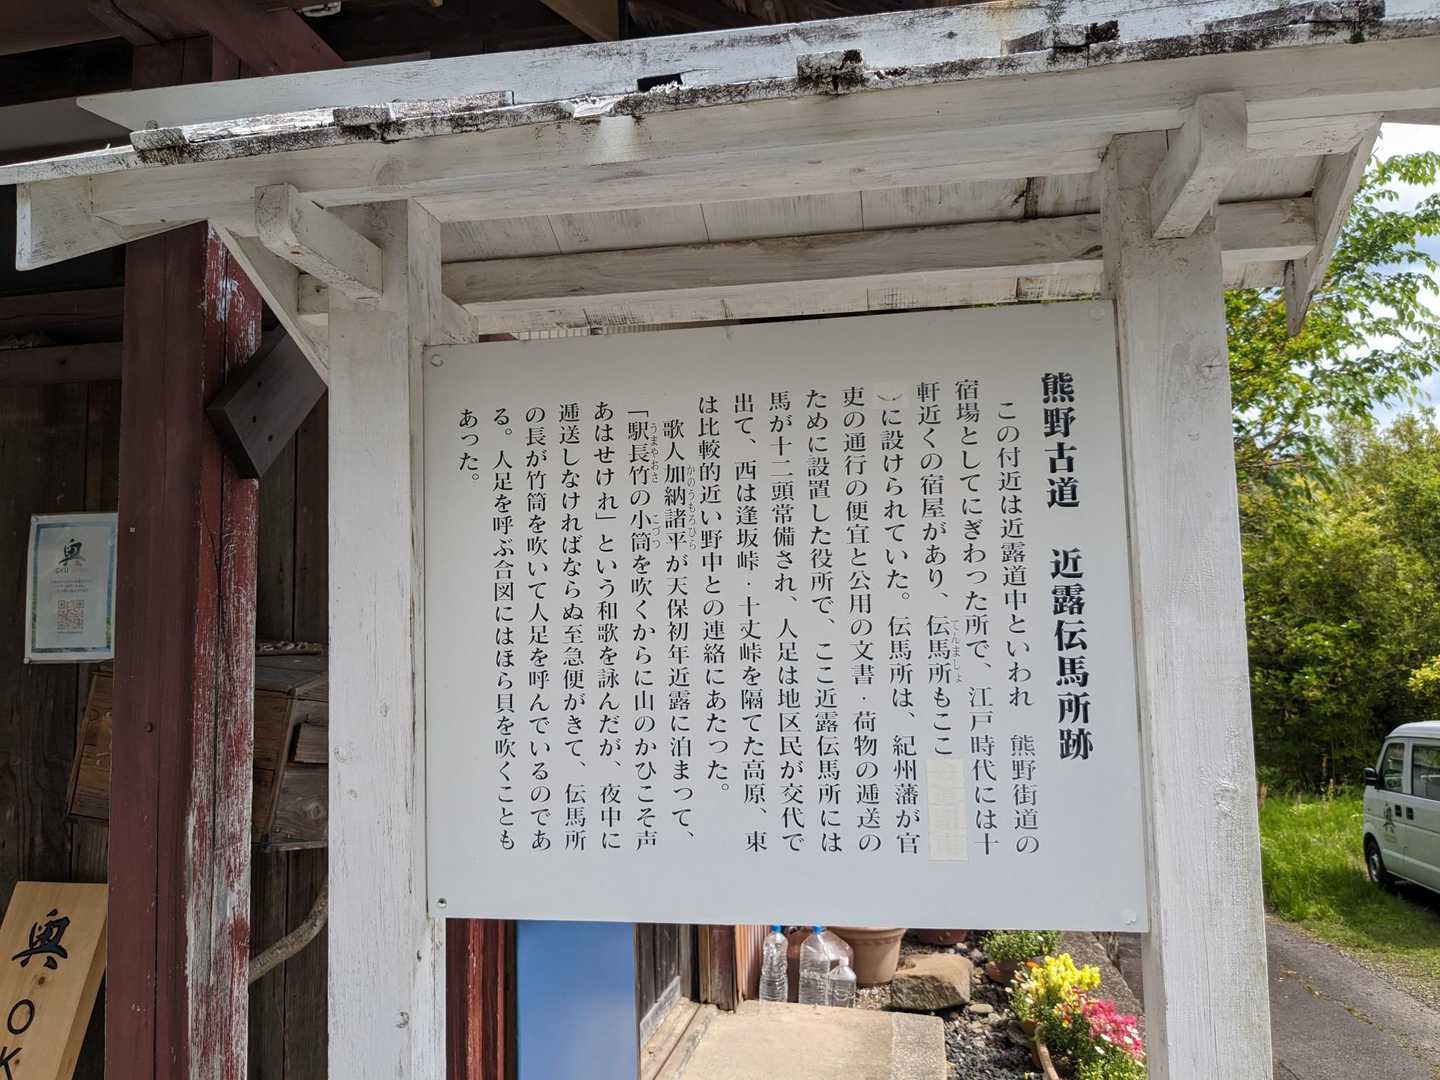 熊野古道 近露伝馬所跡
この付近は近露道中といわれ 熊野街道の
宿場としてにぎわった所で、江戸時代には十
軒近くの宿屋があり、伝馬所もここ
てんましょ
に設けられていた。伝馬所は、紀州藩が官
吏の通行の便宜と公用の文書・荷物の逓送の
ために設置した役所で、ここ近露伝馬所には
馬が十二頭常備され、人足は地区民が交代で
出て、西は逢坂峠・十丈峠を隔てた高原、東
は比較的近い野中との連絡にあたった。
歌人加納諸平が天保初年近露に泊まって、
かのうもろひら
「駅長竹の小筒を吹くからに山のかひこそ声
うまやおさ こづつ
あはせけれ」という和歌を詠んだが、夜中に
逓送しなければならぬ至急便がきて、伝馬所
の長が竹筒を吹いて人足を呼んでいるのであ
る。人足を呼ぶ合図にはほら貝を吹くことも
あった。
奥
奥
OK
奥